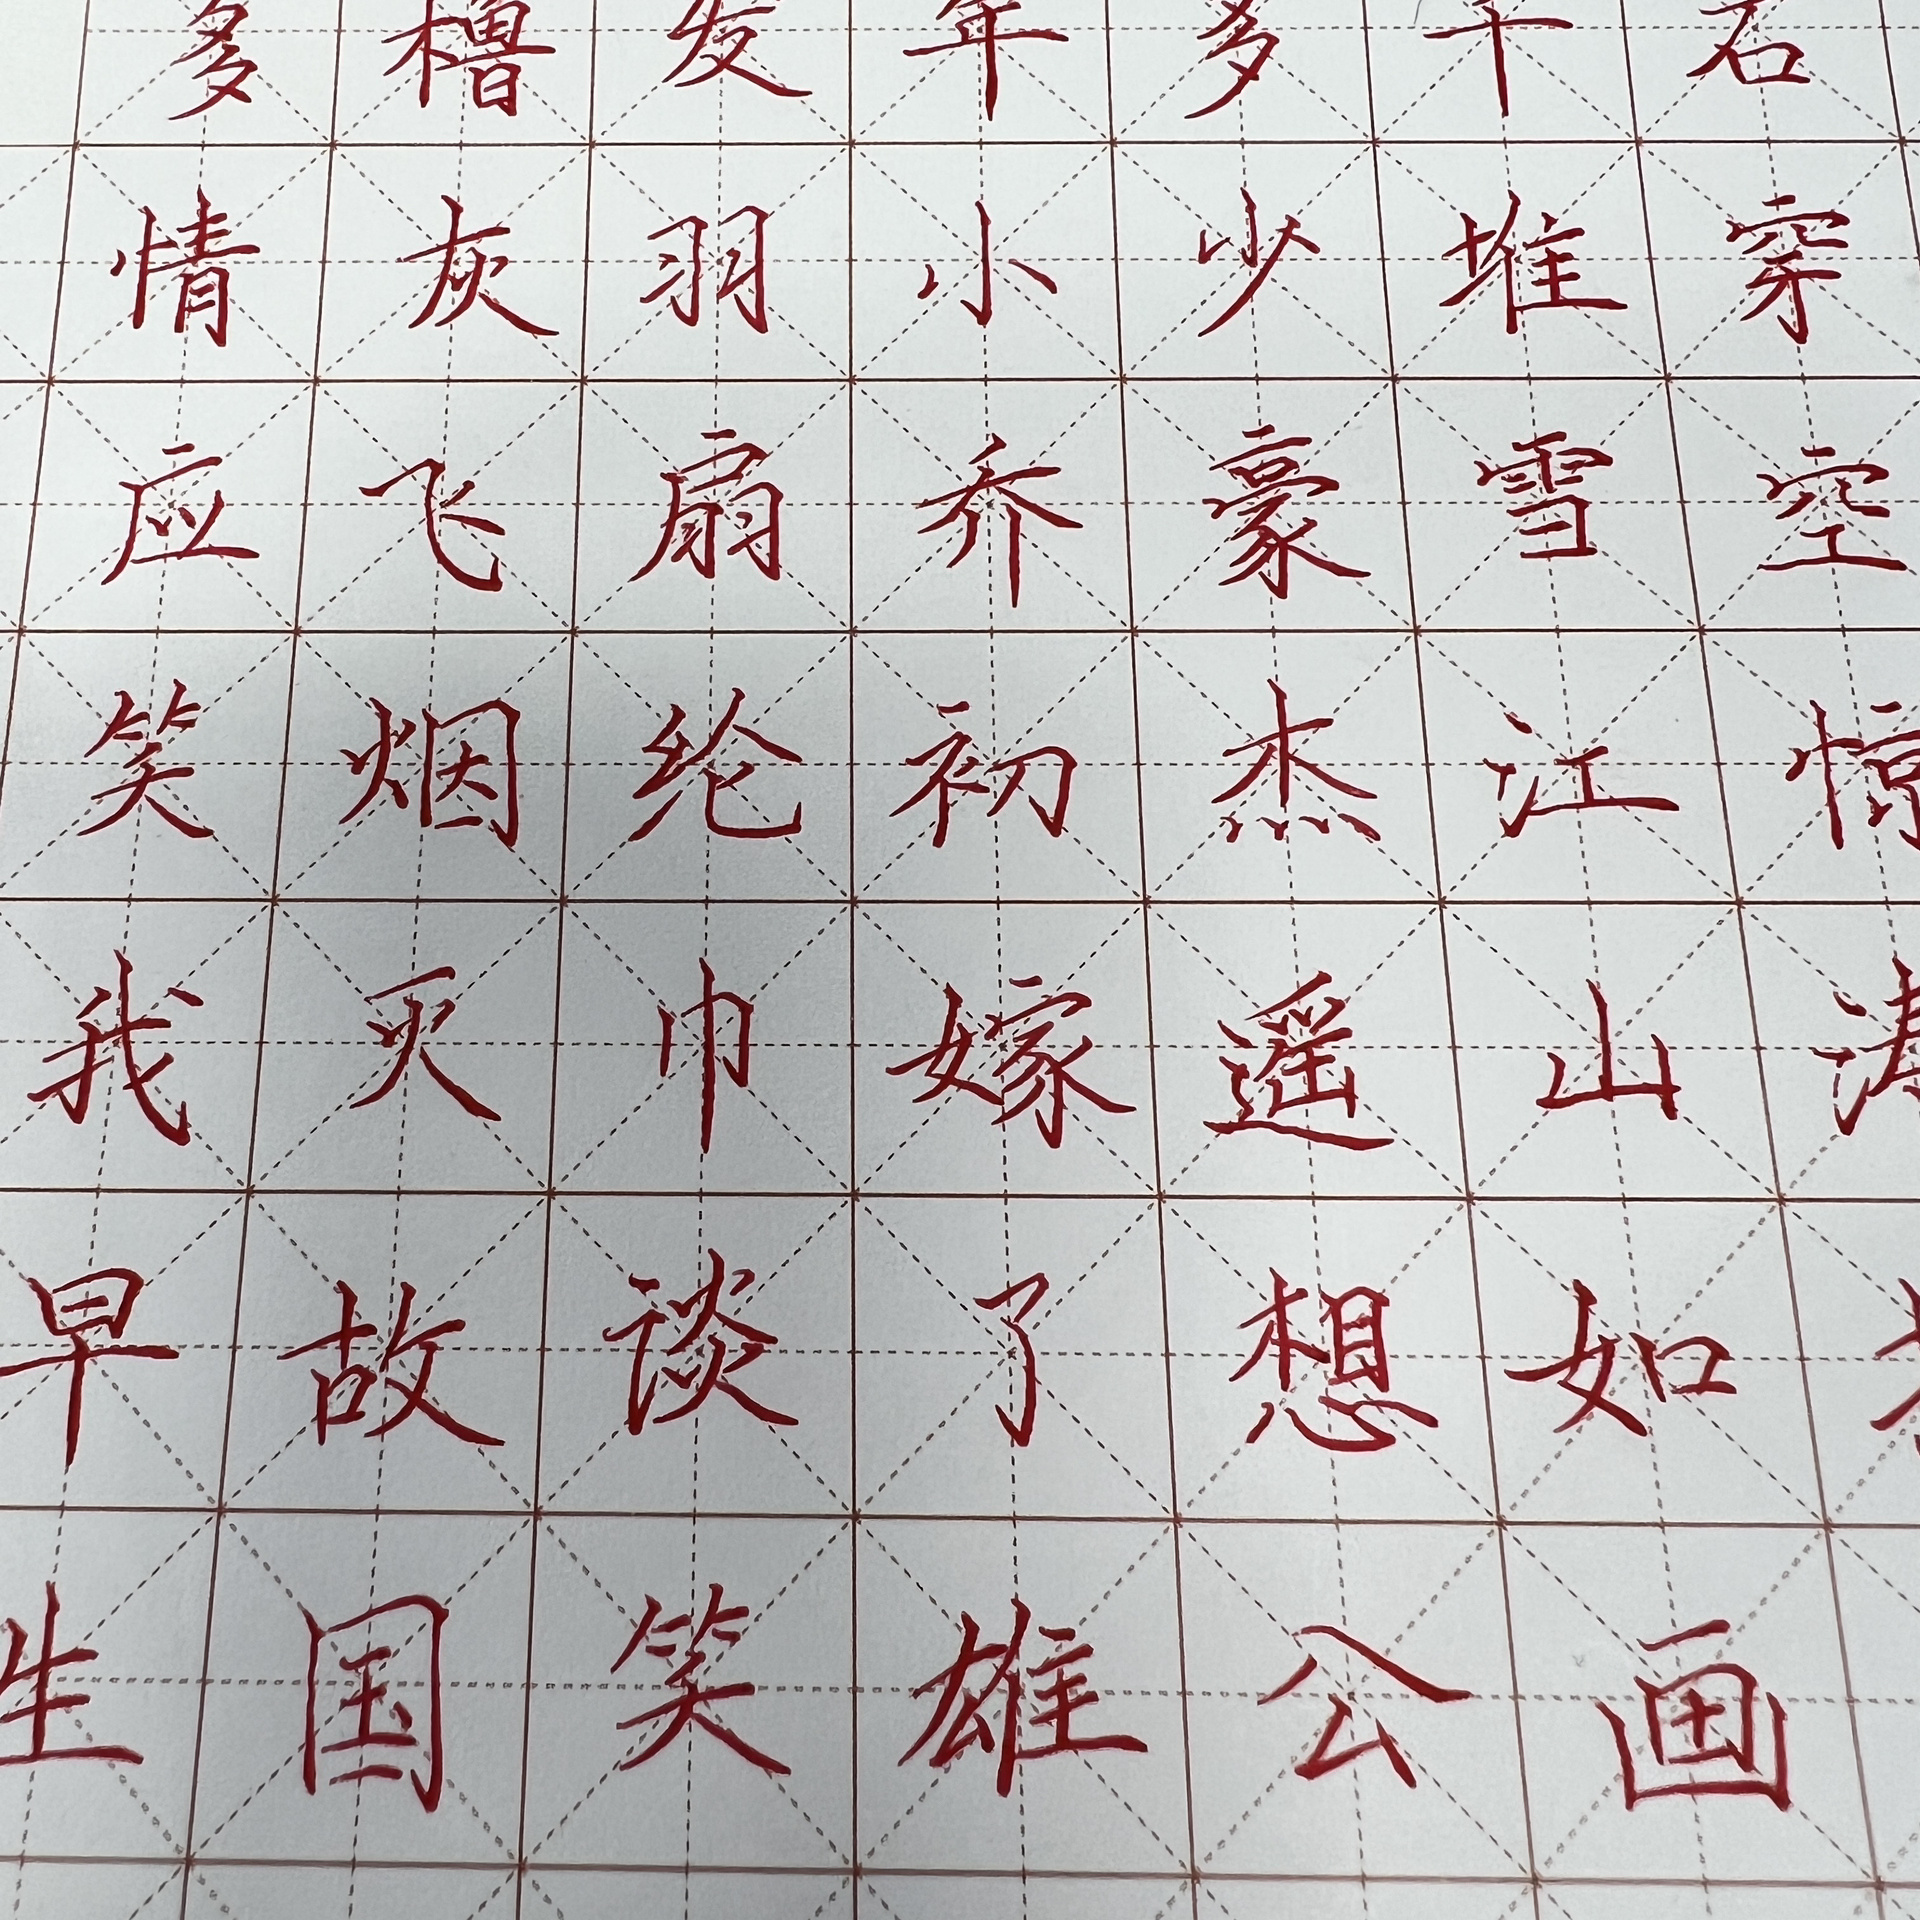 石穿空惊涛
千堆雪江山如画
多少豪杰遥想公
年小乔初嫁了雄
发羽扇纶巾谈笑
橹灰飞烟灭故国
多情应笑我早生